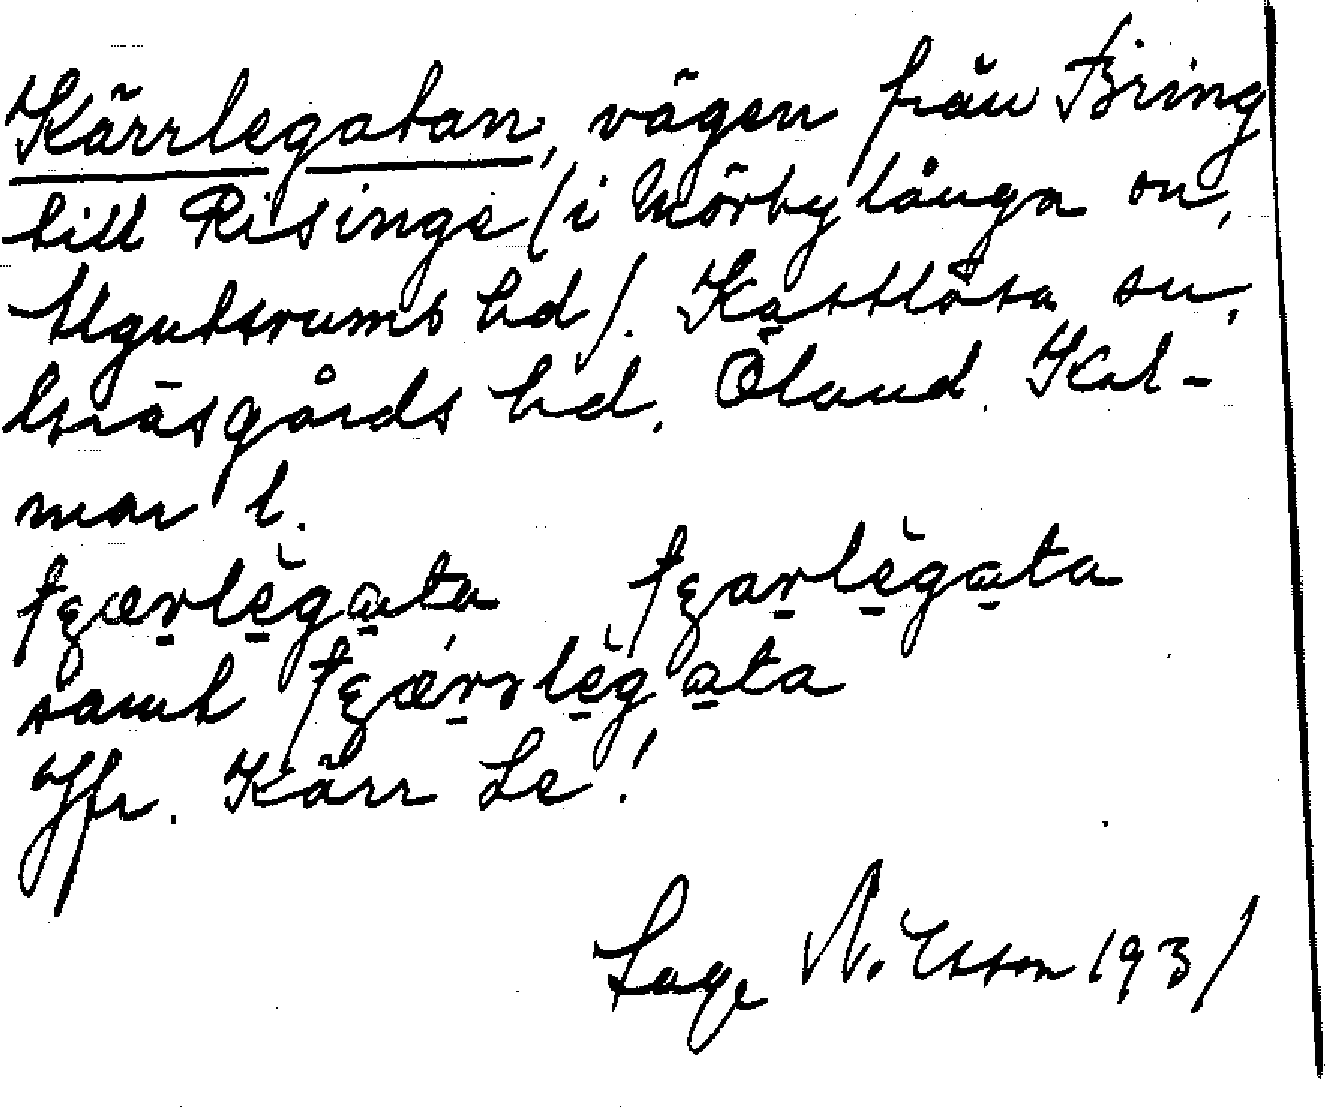 Kärrlegatan, vägen från Bring
till Risinge (i Mörbylånga sn,
Algutsrums hd). Kastlösa sn,
Gräsgårds hd. Öland. Kal-
mar l.
tʒærlègata tʒarlègata
samt tʒærslègata
Jfr. Kärr Le!
Sage Nilsson 1931